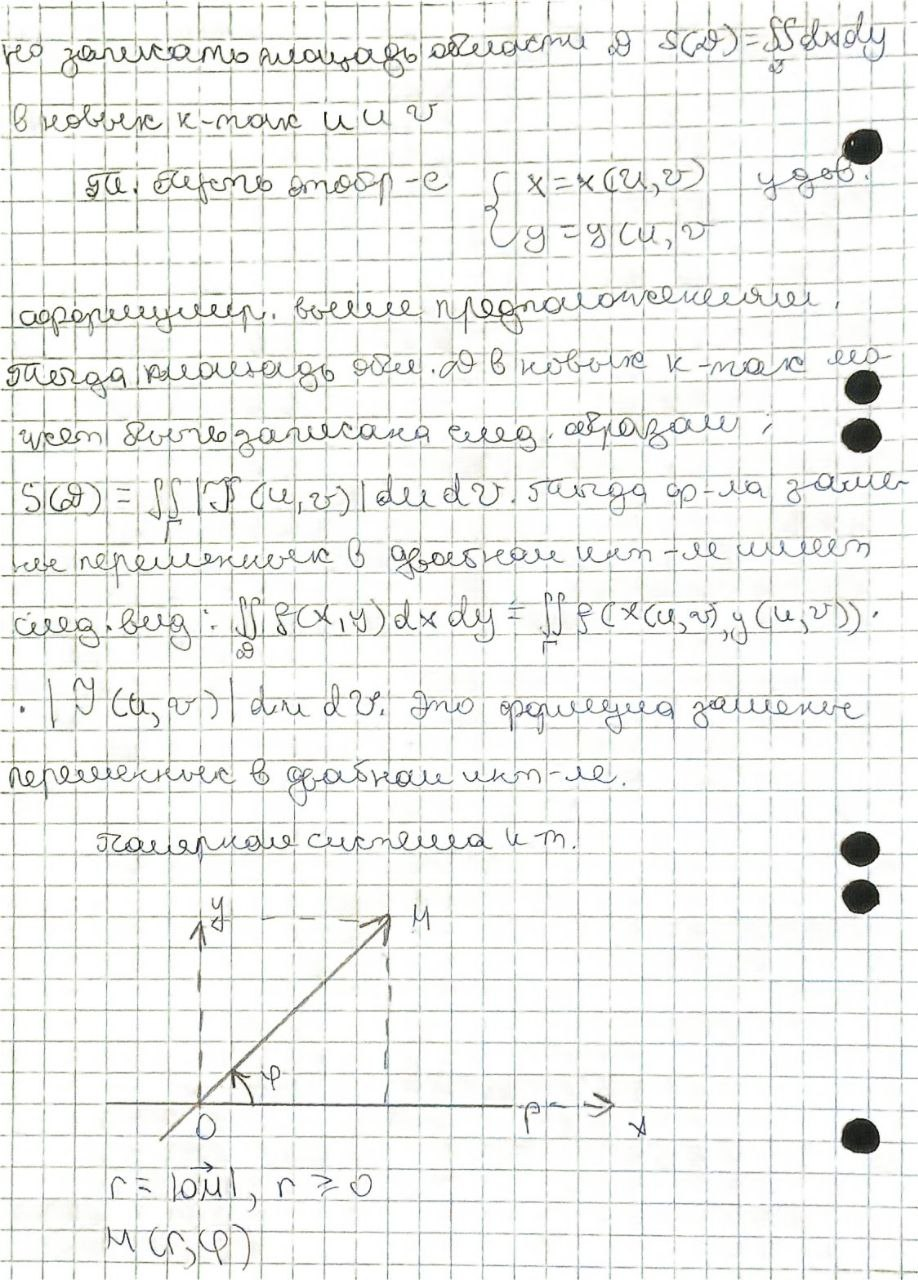 но записать площадь области D S(D)=∬dxdy
D
в новых к-тах u и v
Т. Пусть отобр-е { x=x(u,v) удов.
y=y(u,v
сформулир. выше предположениям.
Тогда площадь обл. D в новых к-тах мо-
жет быть записана след. образом:
S(D) = ∬ |J(u,v)|dudv. Тогда ф-ла заме-
Г
ны переменных в двойном инт-ле имеет
след. вид: ∬f(x,y)dxdy = ∬f(x(u,v),y(u,v))·
D Г
·|J(u,v)|dudv. Это формула замены
переменных в двойном инт-ле.
Полярная система к-т.
y M
φ
O P x
r = |OM|, r ≥ 0
M(r,φ)